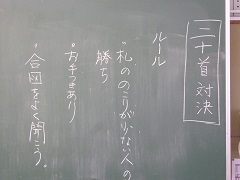 二十首対決
ルール
･札ののこりが少ない人の
勝ち
･お手つきあり
･合図をよく聞こう。